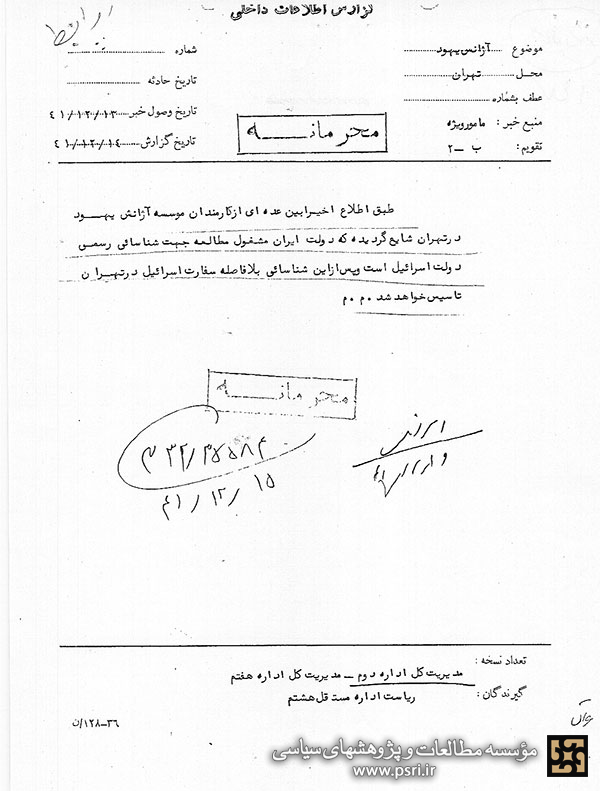 گزارش اطلاعات داخلی
موضوع آژانس یهود
شماره
محل تهران
تاریخ حادثه
عطف بشماره
تاریخ وصول خبر ۴۱/۱۲/۱۳
منبع خبر: مامور ویژه
تاریخ گزارش ۴۱/۱۲/۱۴
تقویم: ب ـ ۲
محرمانــه
طبق اطلاع اخیرا بین عده ای از کارمندان موسسه آژانس یهود
در تهران شایع گردیده که دولت ایران مشغول مطالعه جهت شناسائی رسمی
دولت اسرائیل است و پس از این شناسائی بلافاصله سفارت اسرائیل در تهران
تاسیس خواهد شد م.م
محرمانــه
۴۱/۱۲/۱۵
تعداد نسخه:
مدیریت کل اداره دوم ـ مدیریت کل اداره هفتم
گیرندگان: ریاست اداره مستقل هشتم
۳۶-۱۲۸/ن
مؤسسه مطالعات و پژوهشهای سیاسی
www.psri.ir